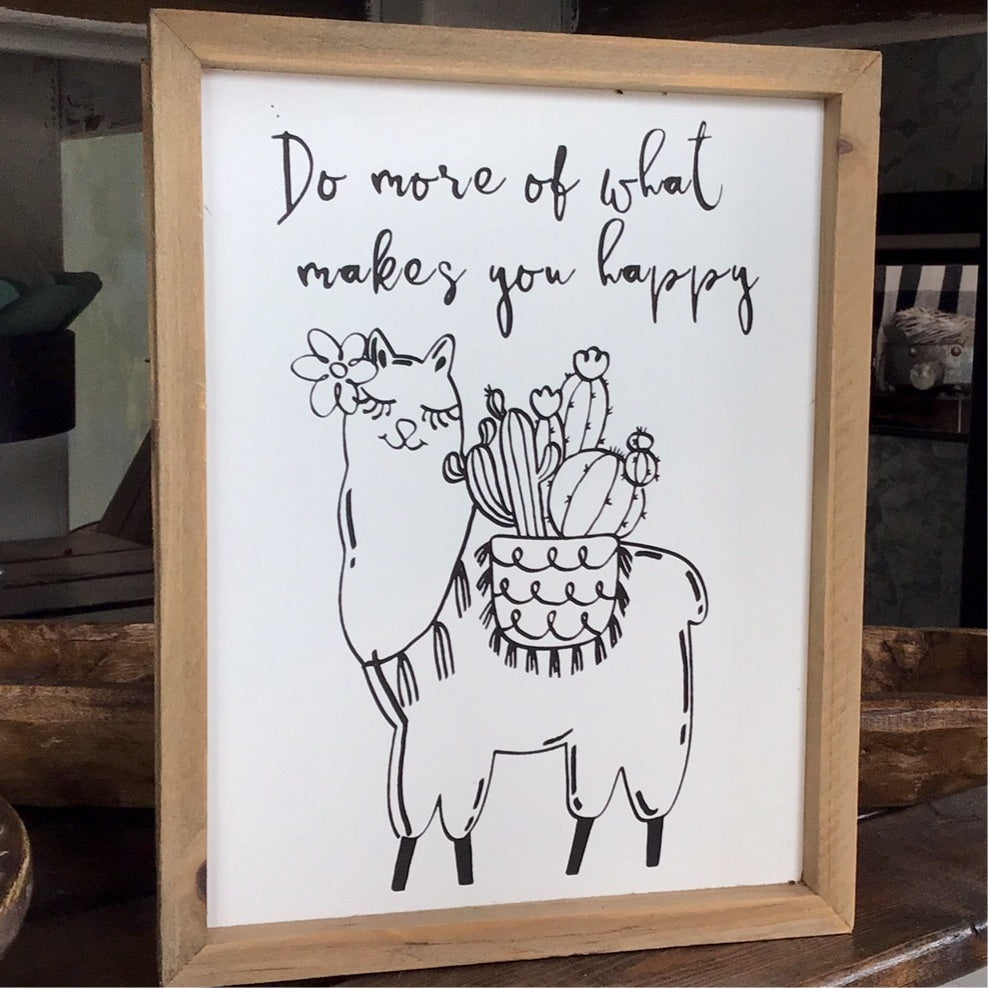 Do more of what
makes you happy